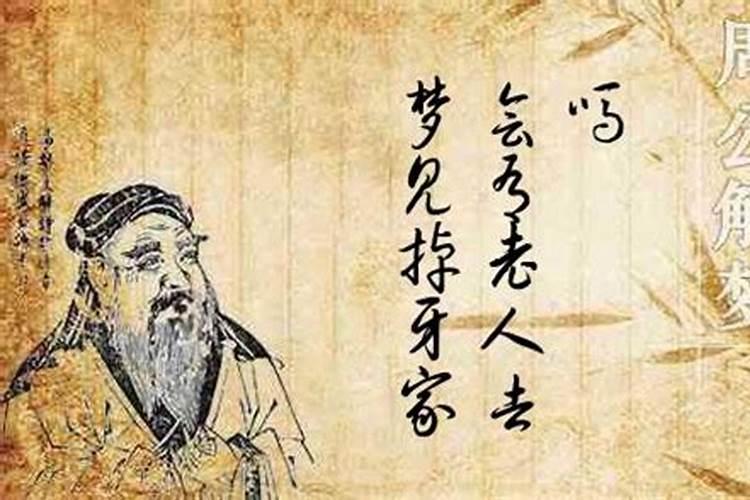 梦见掉牙家
会有老人去
吗
周公解梦